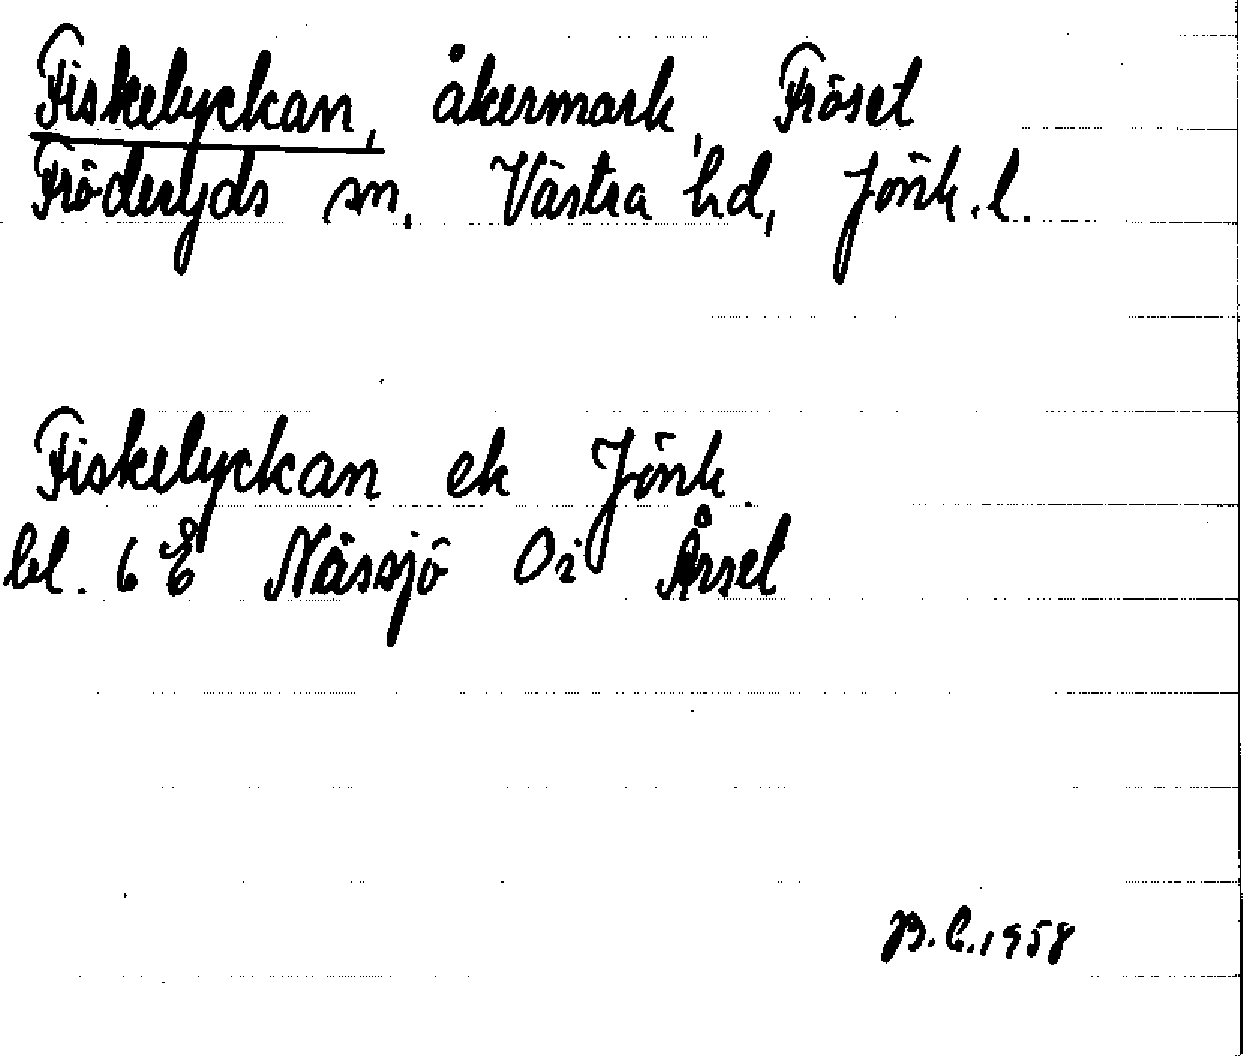 Fiskelyckan, åkermark, Fröset
Fröderyds sn. Västra hd, Jönk.l.
Fiskelyckan ek Jönk.
bl. 6 E Nässjö Oi Årset
B.E.1958